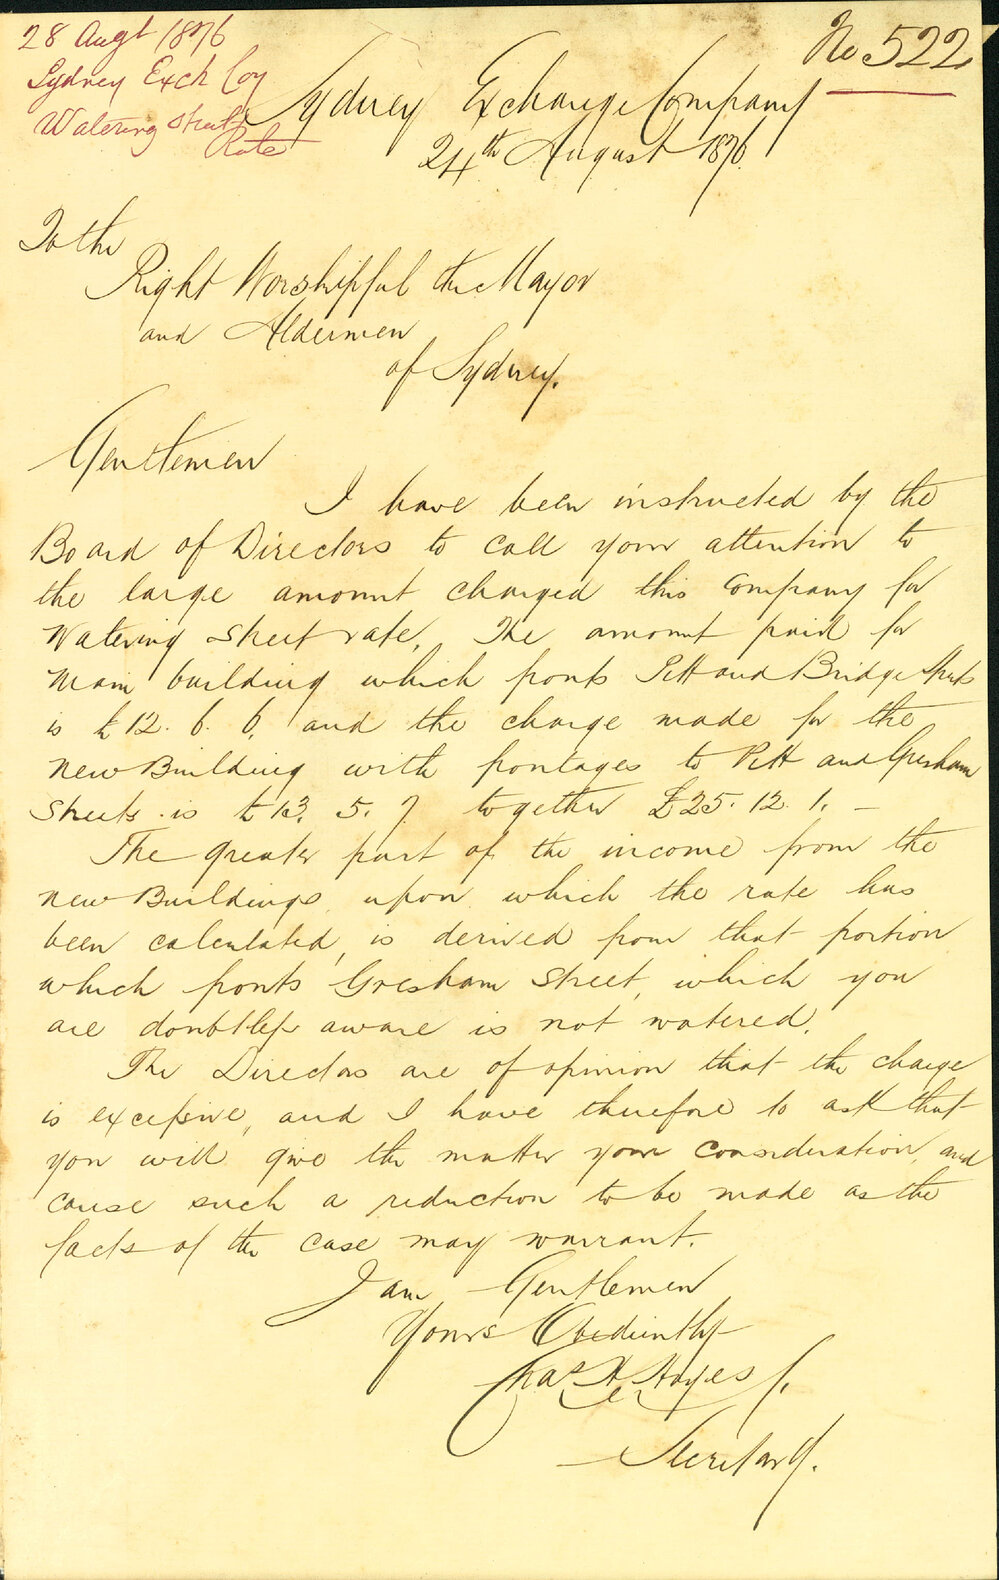 28 Augt 1876
Sydney Exch Coy
Watering Street
Rate
No 522
Sydney Exchange Company
24th August 1876
To the
Right Worshipful the Mayor
and Aldermen
of Sydney.
Gentlemen
I have been instructed by the
Board of Directors to call your attention to
the large amount charged this Company for
Watering Street rate. The amount paid for
Main building which fronts Pitt and Bridge Streets
is £12. 6. 6. and the charge made for the
New Building with frontages to Pitt and Gresham
Streets is £13. 5. 7 together £25. 12. 1. —
The greater part of the income from the
new Buildings, upon which the rate has
been calculated, is derived from that portion
which fronts Gresham Street, which you
are doubtless aware is not watered.
The Directors are of opinion that the charge
is excessive, and I have therefore to ask that
you will give the matter your consideration, and
cause such a reduction to be made as the
facts of the case may warrant.
I am Gentlemen
Yours Obediently
Chas H Hayes
Secretary.